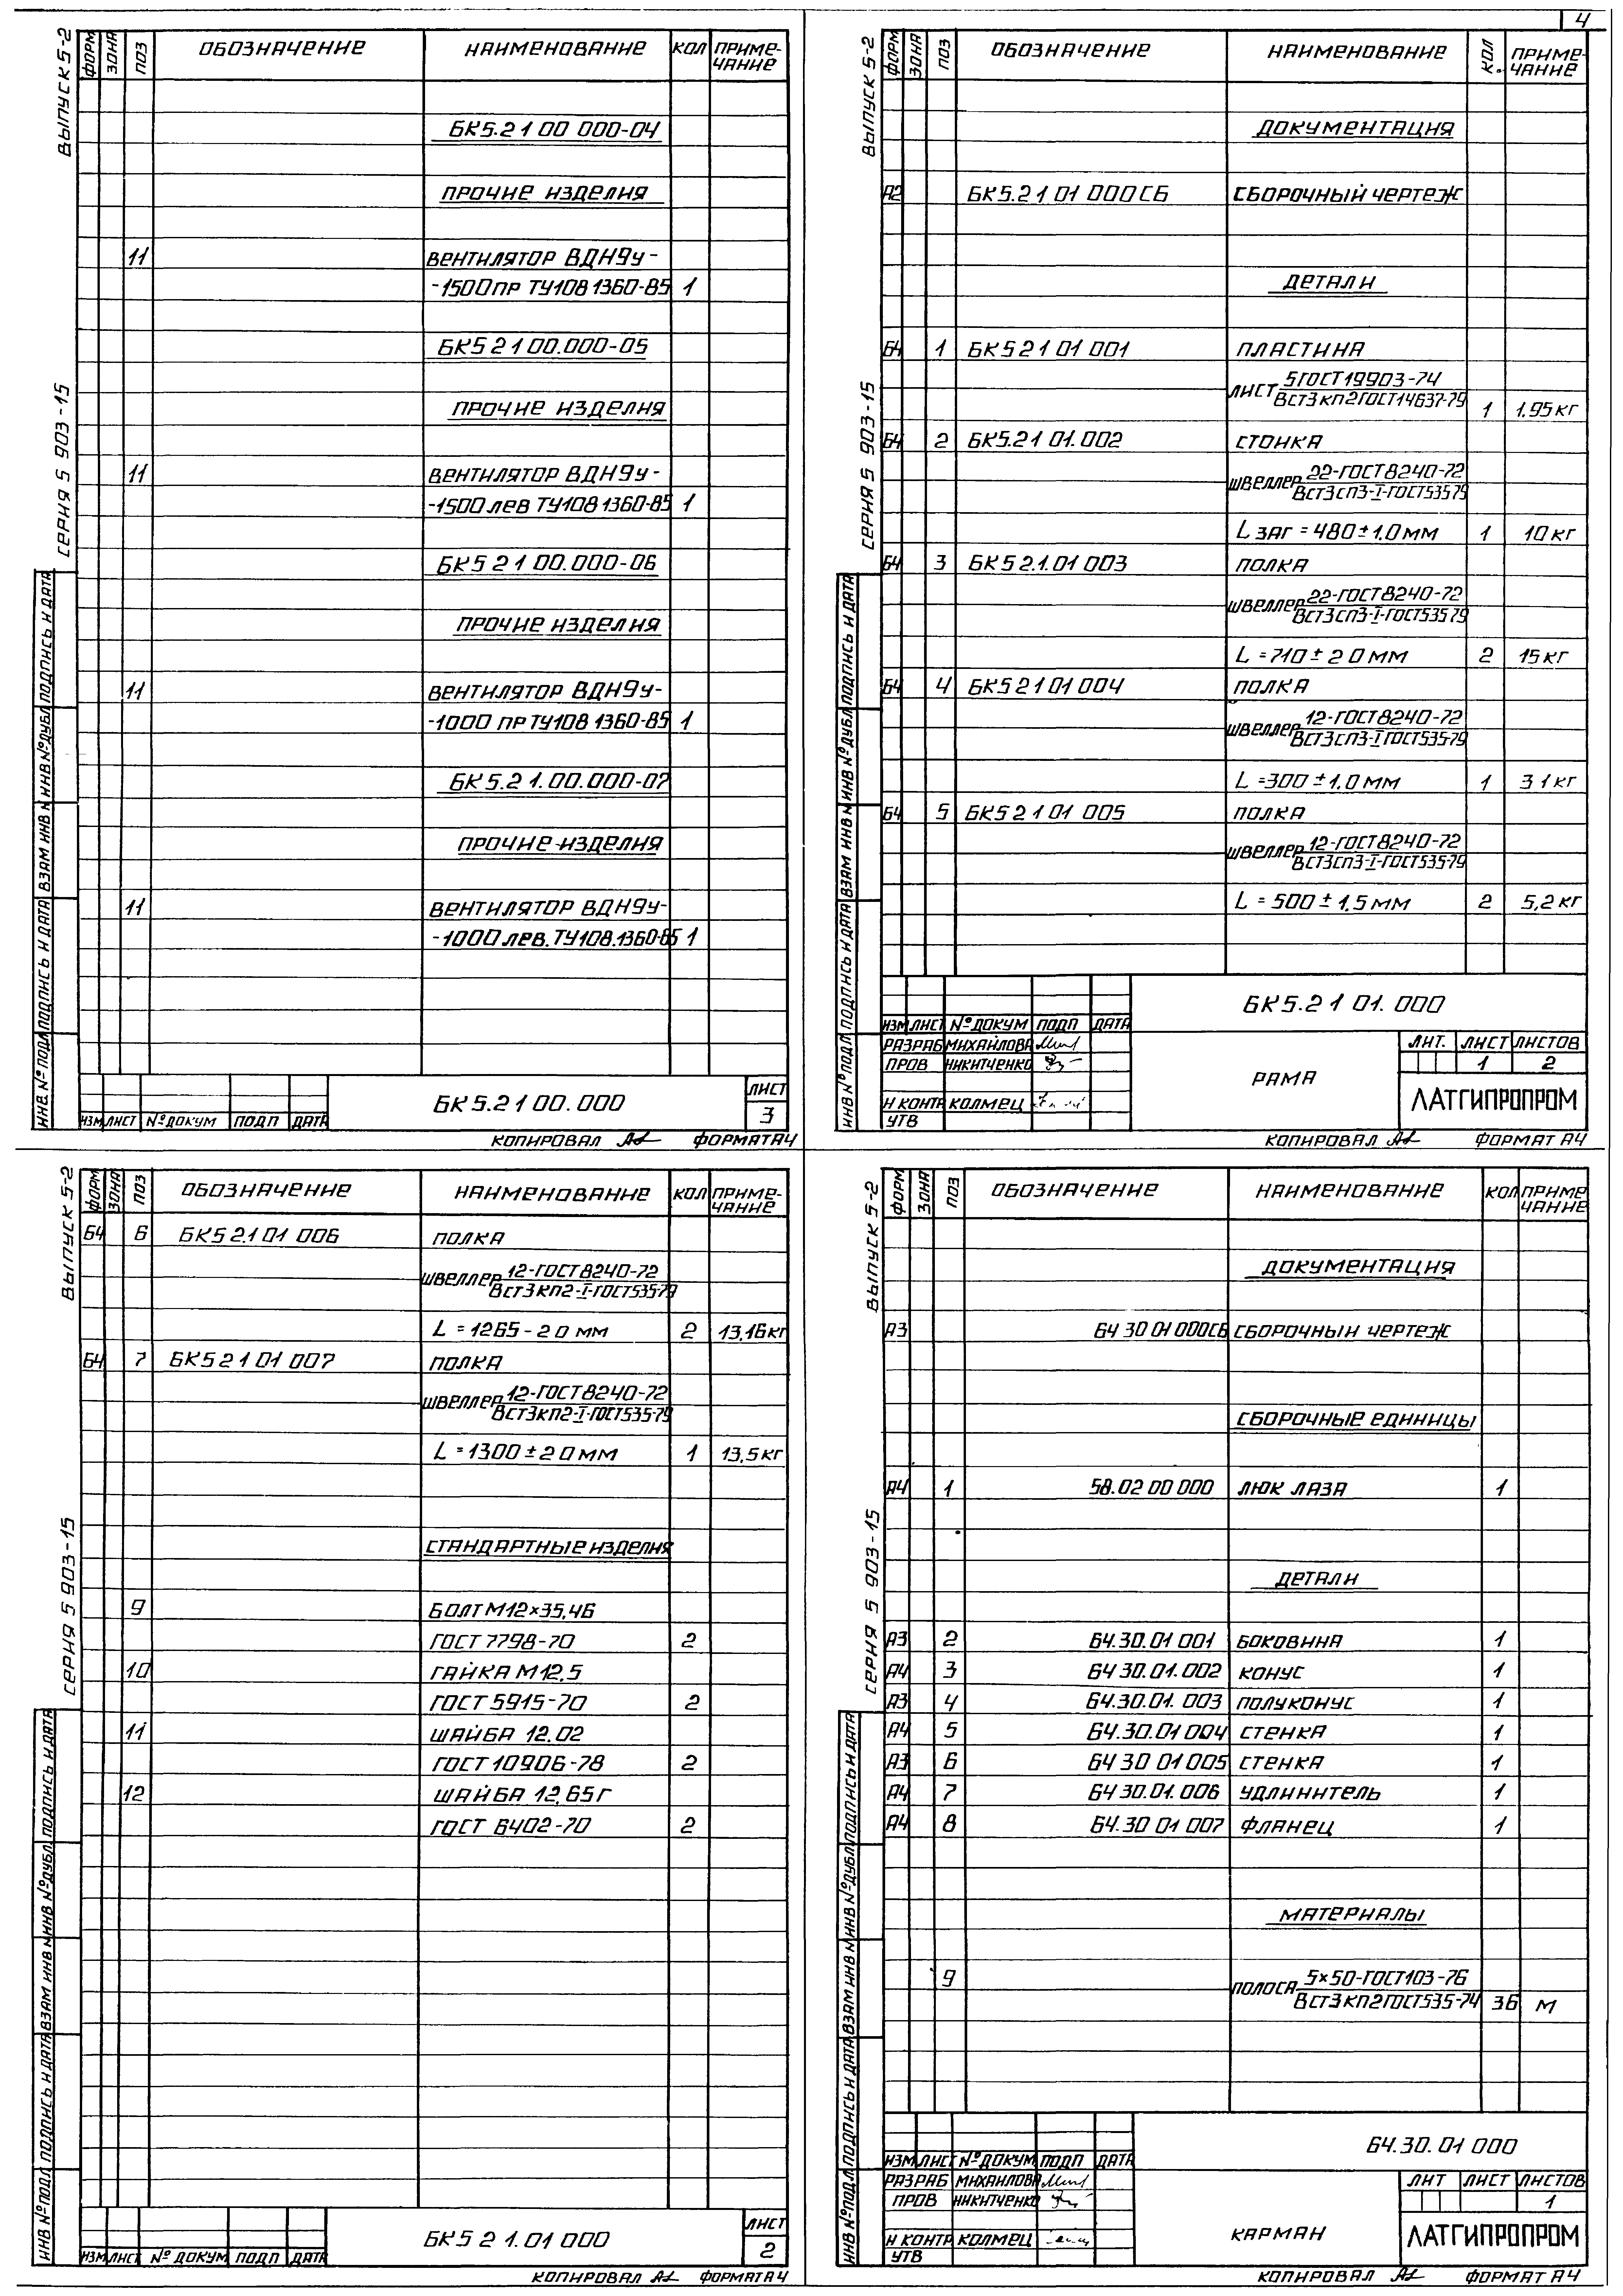 4
ВЫПУСК 5-2
СЕРИЯ 5 903-15
ФОРМ ЗОНА ПОЗ ОБОЗНАЧЕНИЕ НАИМЕНОВАНИЕ КОЛ ПРИМЕ-
ЧАНИЕ
БК5.21 00 000-04
ПРОЧИЕ ИЗДЕЛИЯ
11 ВЕНТИЛЯТОР ВДН9у-
-1500ПР ТУ108 1360-85 1
БК5 21 00.000-05
ПРОЧИЕ ИЗДЕЛИЯ
11 ВЕНТИЛЯТОР ВДН9у-
-1500 ЛЕВ ТУ108 1360-85 1
БК5 21 00.000-06
ПРОЧИЕ ИЗДЕЛИЯ
11 ВЕНТИЛЯТОР ВДН9у-
-1000 ПР ТУ108 1360-85 1
БК5.21.00.000-07
ПРОЧИЕ ИЗДЕЛИЯ
11 ВЕНТИЛЯТОР ВДН9у-
-1000 ЛЕВ. ТУ108.1360-85 1
ИНВ. № ПОДЛ ПОДПИСЬ И ДАТА ВЗАМ ИНВ № ИНВ № ДУБЛ ПОДПИСЬ И ДАТА
ИЗМ ЛИСТ № ДОКУМ ПОДП ДАТА
БК5.21 00.000
ЛИСТ
3
КОПИРОВАЛ ФОРМАТ А4
ВЫПУСК 5-2
СЕРИЯ 5 903-15
ФОРМ ЗОНА ПОЗ ОБОЗНАЧЕНИЕ НАИМЕНОВАНИЕ КОЛ. ПРИМЕ-
ЧАНИЕ
ДОКУМЕНТАЦИЯ
А2 БК5.21 01 000СБ СБОРОЧНЫЙ ЧЕРТЕЖ
ДЕТАЛИ
Б4 1 БК5 21 01 001 ПЛАСТИНА
ЛИСТ 5 ГОСТ 19903-74
ВСт3 кп2 ГОСТ14637-79 1 1.95 кг
Б4 2 БК5.21 01.002 СТОЙКА
ШВЕЛЛЕР 22-ГОСТ 8240-72
ВСт3сп3-I-ГОСТ535 79
L ЗАГ = 480 ± 1.0 ММ 1 10 кг
Б4 3 БК5 2.1.01 003 ПОЛКА
ШВЕЛЛЕР 22-ГОСТ 8240-72
ВСт3сп3-I-ГОСТ535 79
L = 710 ± 2 0 ММ 2 15 кг
Б4 4 БК5 21 01 004 ПОЛКА
ШВЕЛЛЕР 12-ГОСТ 8240-72
ВСт3сп3-I ГОСТ535-79
L = 300 ± 1.0 ММ 1 3 1 кг
Б4 5 БК5 21 01 005 ПОЛКА
ШВЕЛЛЕР 12-ГОСТ 8240-72
ВСт3сп3-I-ГОСТ535-79
L = 500 ± 1,5 ММ 2 5,2 кг
ИНВ № ПОДЛ ПОДПИСЬ И ДАТА ВЗАМ ИНВ № ИНВ № ДУБЛ ПОДПИСЬ И ДАТА
БК5.21 01.000
ИЗМ ЛИСТ № ДОКУМ ПОДП ДАТА
РАЗРАБ МИХАЙЛОВА
ПРОВ НИКИТЧЕНКО
Н КОНТР КОЛМЕЦ
УТВ
РАМА
ЛИТ. ЛИСТ ЛИСТОВ
1 2
ЛАТГИПРОПРОМ
КОПИРОВАЛ ФОРМАТ А4
ВЫПУСК 5-2
СЕРИЯ 5 903-15
ФОРМ ЗОНА ПОЗ ОБОЗНАЧЕНИЕ НАИМЕНОВАНИЕ КОЛ ПРИМЕ-
ЧАНИЕ
Б4 6 БК5 2.1 01 006 ПОЛКА
ШВЕЛЛЕР 12-ГОСТ 8240-72
ВСт3кп2-I-ГОСТ535-79
L = 1265 - 2 0 ММ 2 13,16 кг
Б4 7 БК5 21 01 007 ПОЛКА
ШВЕЛЛЕР 12-ГОСТ 8240-72
ВСт3кп2-I-ГОСТ535-79
L = 1300 ± 2 0 ММ 1 13,5 кг
СТАНДАРТНЫЕ ИЗДЕЛИЯ
9 БОЛТ М12×35,46
ГОСТ 7798-70 2
10 ГАЙКА М12,5
ГОСТ 5915-70 2
11 ШАЙБА 12.02
ГОСТ 10906-78 2
12 ШАЙБА 12,65Г
ГОСТ 6402-70 2
ИНВ № ПОДЛ ПОДПИСЬ И ДАТА ВЗАМ ИНВ № ИНВ № ДУБЛ ПОДПИСЬ И ДАТА
ИЗМ ЛИСТ № ДОКУМ ПОДП ДАТА
БК5 2 1.01 000
ЛИСТ
2
КОПИРОВАЛ ФОРМАТ А4
ВЫПУСК 5-2
СЕРИЯ 5 903-15
ФОРМ ЗОНА ПОЗ ОБОЗНАЧЕНИЕ НАИМЕНОВАНИЕ КОЛ ПРИМЕ
ЧАНИЕ
ДОКУМЕНТАЦИЯ
А3 Б4 30 01 000СБ СБОРОЧНЫЙ ЧЕРТЕЖ
СБОРОЧНЫЕ ЕДИНИЦЫ
А4 1 58.02 00 000 ЛЮК ЛАЗА 1
ДЕТАЛИ
А3 2 Б4.30.01 001 БОКОВИНА 1
А4 3 Б4 30.01.002 КОНУС 1
А3 4 Б4.30.01. 003 ПОЛУКОНУС 1
А4 5 Б4.30.01 004 СТЕНКА 1
А3 6 Б4 30 01 005 СТЕНКА 1
А4 7 Б4 30.01. 006 УДЛИНИТЕЛЬ 1
А4 8 Б4.30 01 007 ФЛАНЕЦ 1
МАТЕРИАЛЫ
9 ПОЛОСА 5×50-ГОСТ103-76
ВСт3 кп2 ГОСТ535-74 36 М
ИНВ № ПОДЛ ПОДПИСЬ И ДАТА ВЗАМ ИНВ № ИНВ № ДУБЛ ПОДПИСЬ И ДАТА
Б4.30.01 000
ИЗМ ЛИСТ № ДОКУМ ПОДП ДАТА
РАЗРАБ МИХАЙЛОВА
ПРОВ НИКИТЧЕНКО
Н КОНТР КОЛМЕЦ
УТВ
КАРМАН
ЛИТ ЛИСТ ЛИСТОВ
1
ЛАТГИПРОПРОМ
КОПИРОВАЛ ФОРМАТ А4